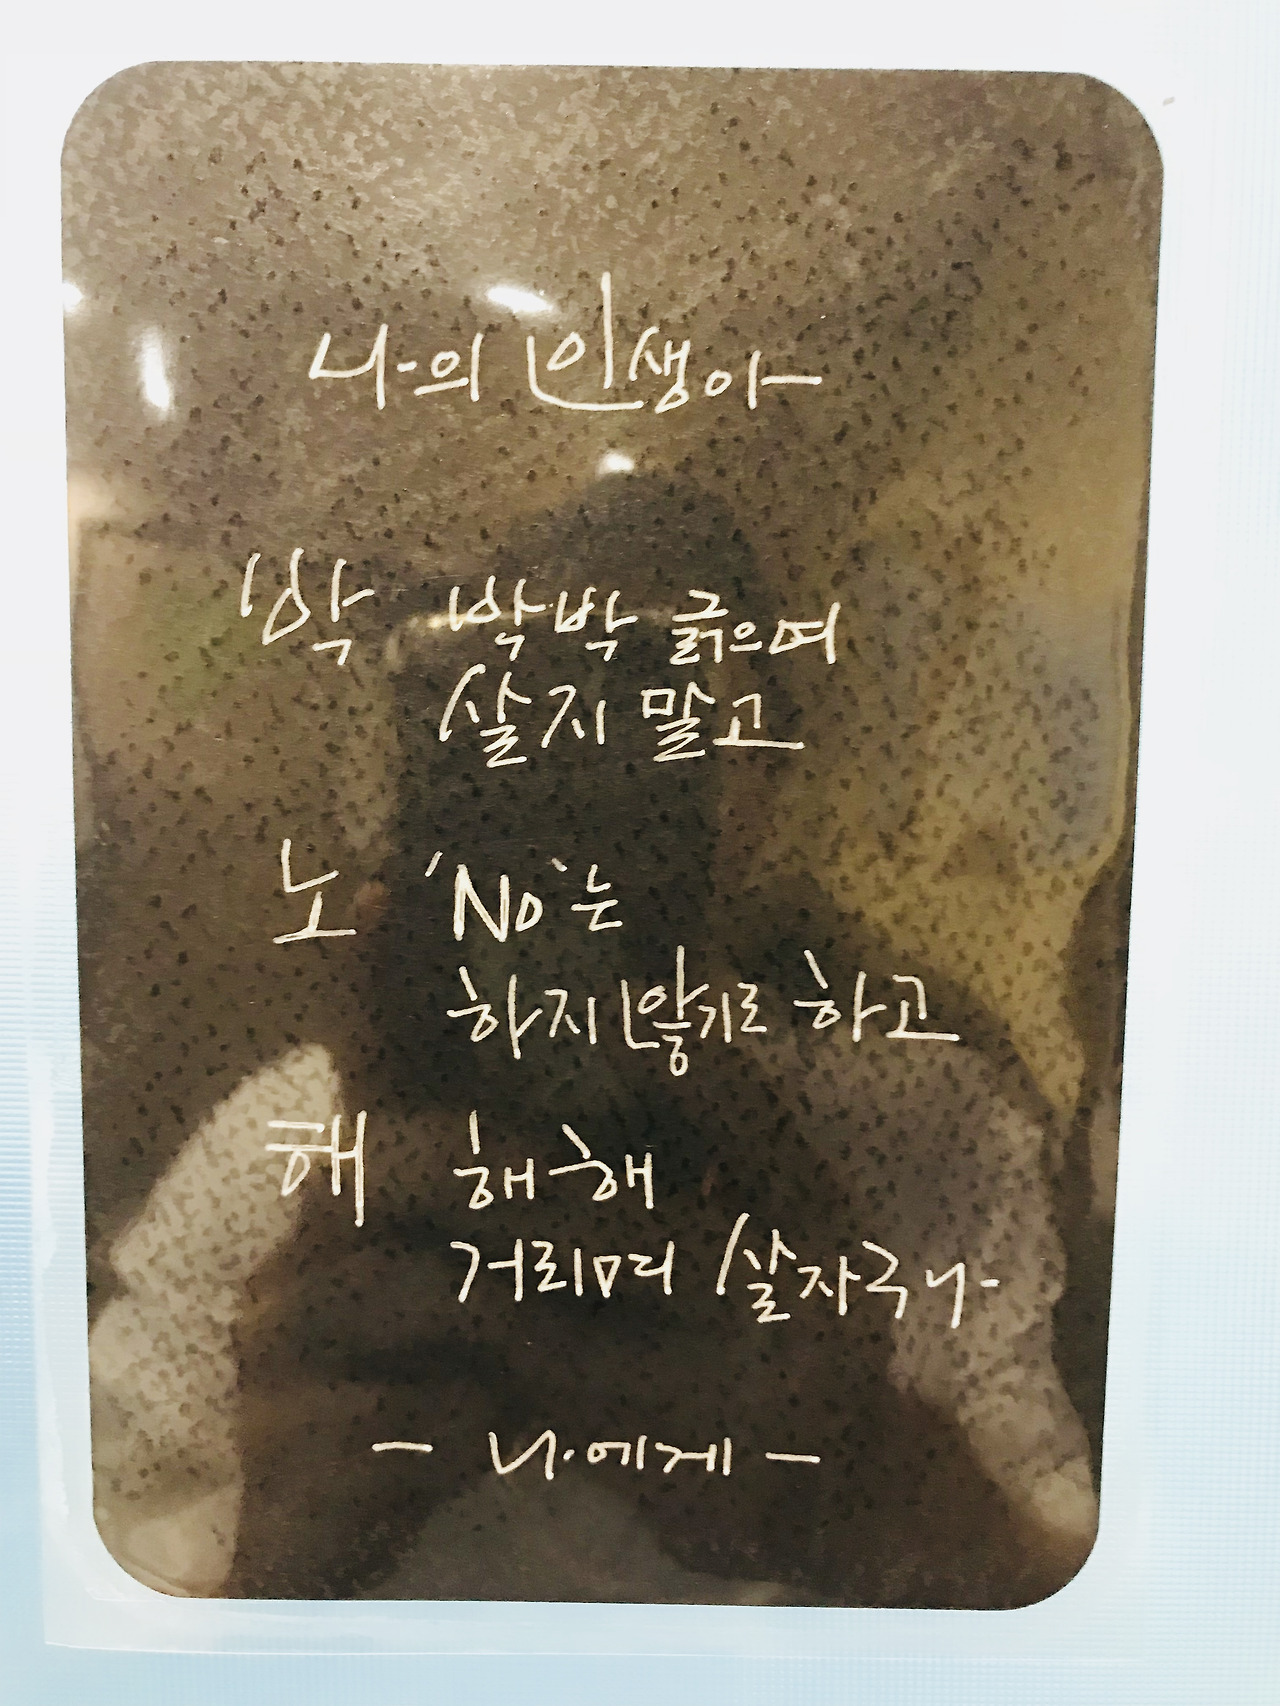 나의 인생아
박 박박 긁으며
살지 말고
노 'No'는
하지 않기로 하고
해 해해
거리며 살자구나
- 나에게 -